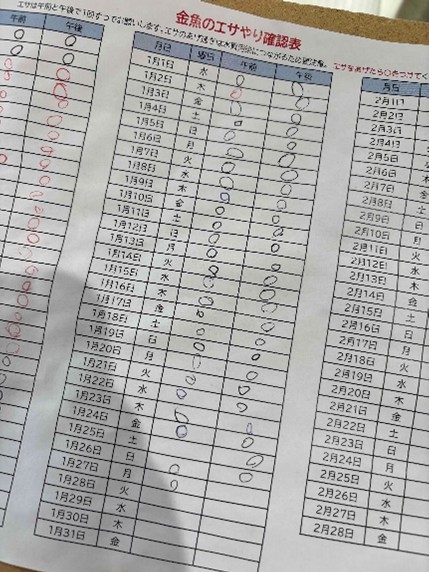 金魚のエサやり確認表
エサは午前と午後で1回ずつでお願いします。エサのあげ過ぎは につながるため エサをあげたら○をつけてく
午前 午後
月日 曜日 午前 午後
1月1日 水 ○ ○
1月2日 木 ○ ○
1月3日 金 ○ ○
1月4日 土 ○ ○
1月5日 日 ○ ○
1月6日 月 ○ ○
1月7日 火 ○ ○
1月8日 水 ○ ○
1月9日 木 ○ ○
1月10日 金 ○ ○
1月11日 土 ○ ○
1月12日 日 ○ ○
1月13日 月 ○ ○
1月14日 火 ○ ○
1月15日 水 ○ ○
1月16日 木 ○ ○
1月17日 金 ○ ○
1月18日 土 ○ ○
1月19日 日 ○ ○
1月20日 月 ○ ○
1月21日 火 ○ ○
1月22日 水 ○ ○
1月23日 木 ○ ○
1月24日 金 ○ ○
1月25日 土 ○ ○
1月26日 日 ○
1月27日 月 ○ ○
1月28日 火 ○
1月29日 水
1月30日 木
1月31日 金
月日
2月1日
2月2日
2月3日
2月4日
2月5日
2月6日
2月7日
2月8日 土
2月9日 日
2月10日 月
2月11日 火
2月12日 水
2月13日 木
2月14日 金
2月15日 土
2月16日 日
2月17日 月
2月18日 火
2月19日 水
2月20日 木
2月21日 金
2月22日 土
2月23日 日
2月24日 月
2月25日 火
2月26日 水
2月27日 木
2月28日 金